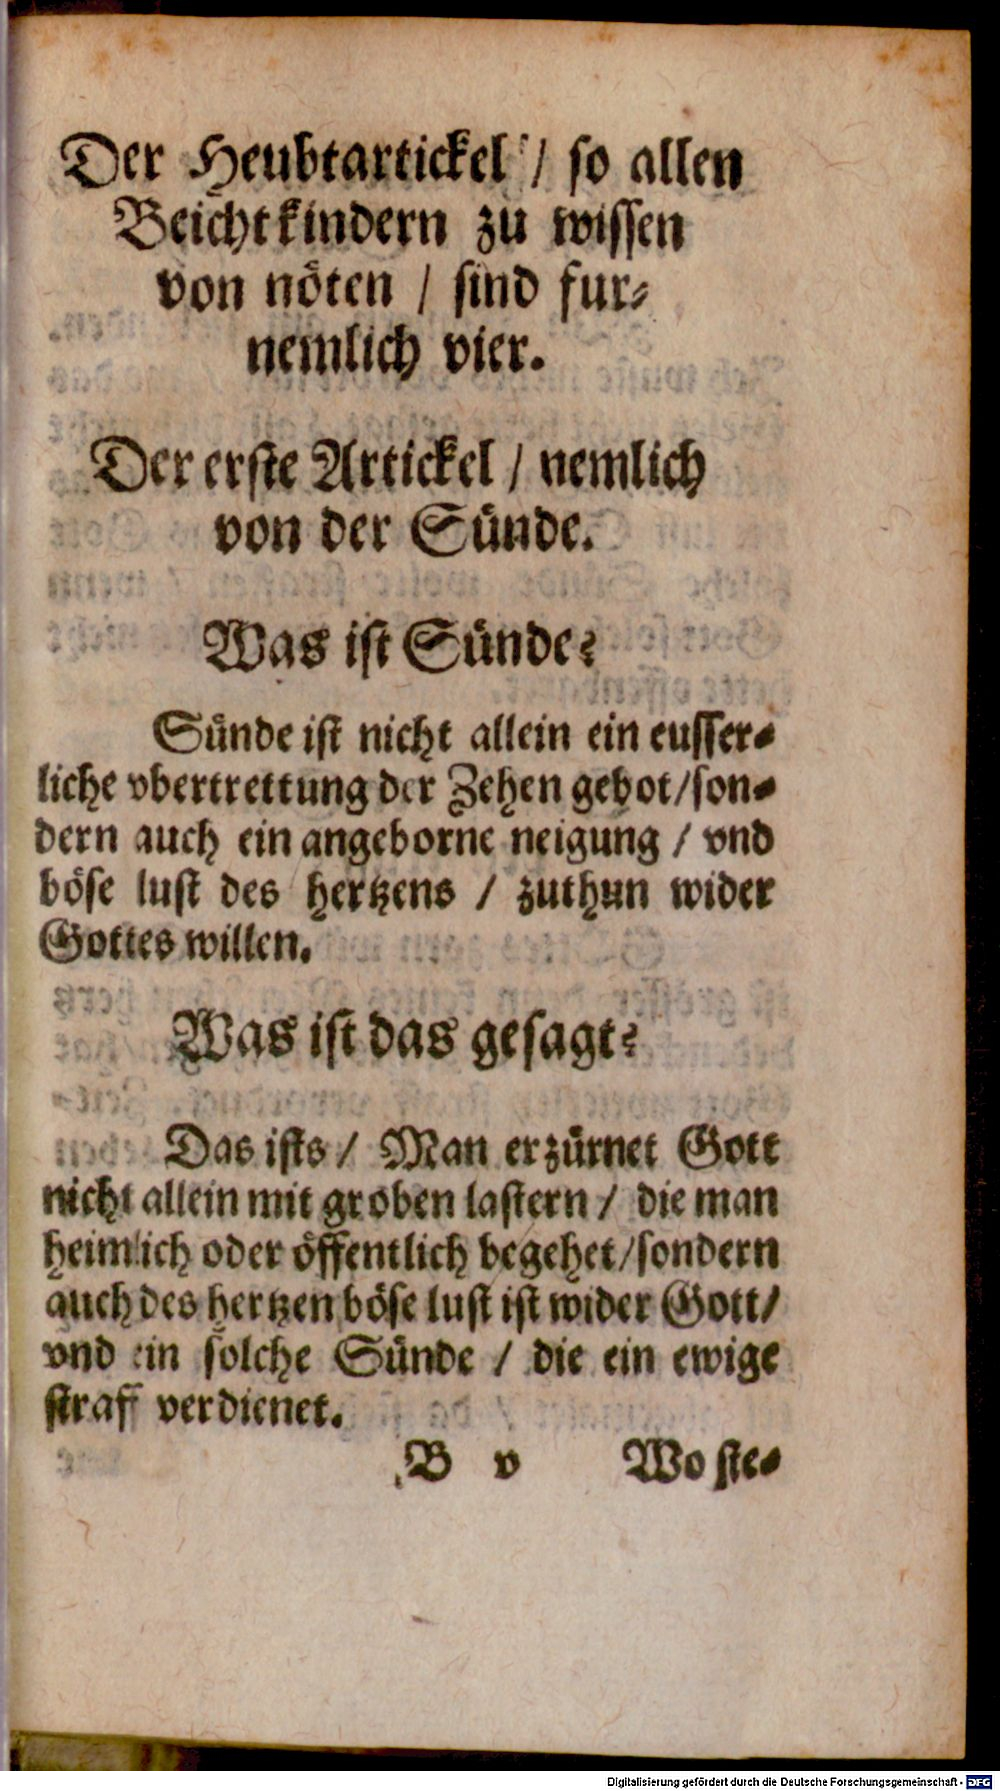 Der Heubtartickel / so allen
Beichtkindern zu wissen
von nöten / sind fur-
nemlich vier.
Der erste Artickel / nemlich
von der Sünde.
Was ist Sünde?
Sünde ist nicht allein ein eusser-
liche vbertrettung der Zehen gebot/son-
dern auch ein angeborne neigung / vnd
böse lust des hertzens / zuthun wider
Gottes willen.
Was ist das gesagt?
Das ists / Man erzürnet Gott
nicht allein mit groben lastern / die man
heimlich oder öffentlich begehet/sondern
auch des hertzen böse lust ist wider Gott/
vnd ein solche Sünde / die ein ewige
straff verdienet.
B v Wo ste-
Digitalisierung gefördert durch die Deutsche Forschungsgemeinschaft - DFG